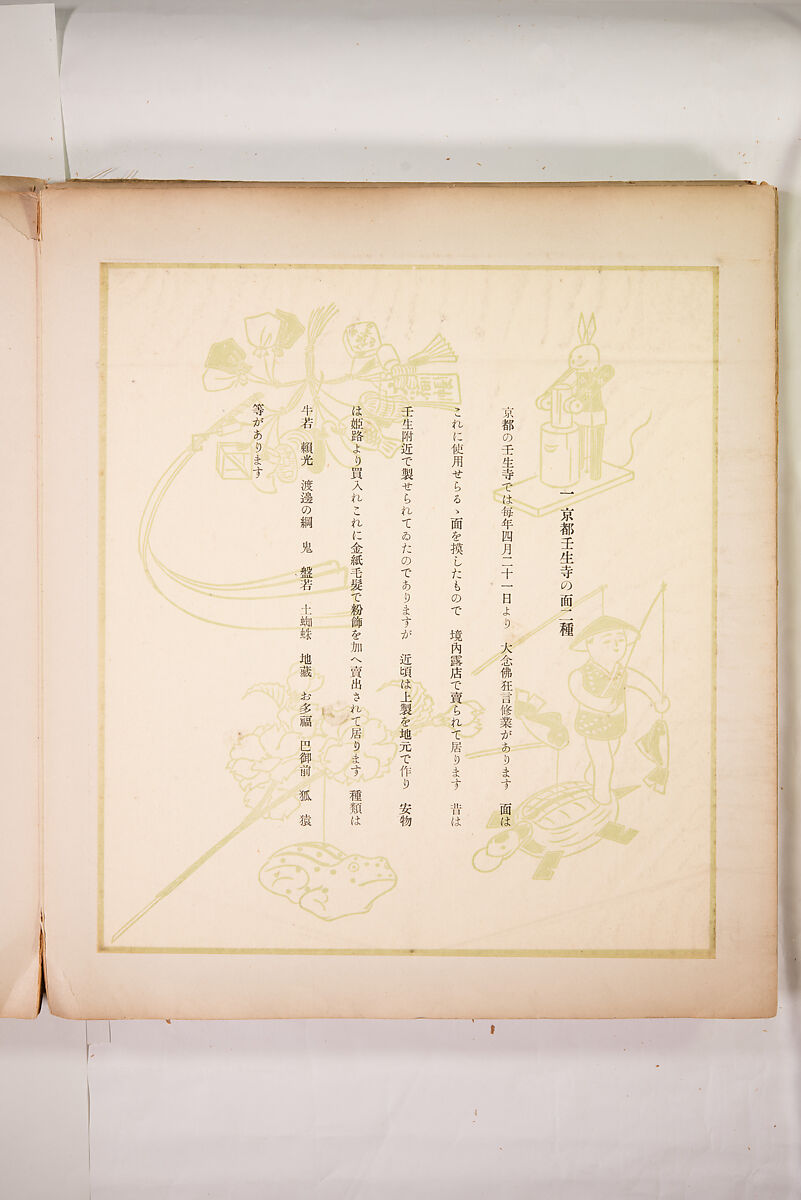 一 京都壬生寺の面二種
京都の壬生寺では每年四月二十一日より 大念佛狂言修業があります 面は
これに使用せらるゝ面を摸したもので 境內露店で賣られて居ります 昔は
壬生附近で製せられてゐたのでありますが 近頃は上製を地元で作り 安物
は姫路より買入れこれに金紙毛髮で粉飾を加へ賣出されて居ります 種類は
牛若 賴光 渡邊の綱 鬼 盤若 土蜘蛛 地藏 お多福 巴御前 狐 猿
等があります